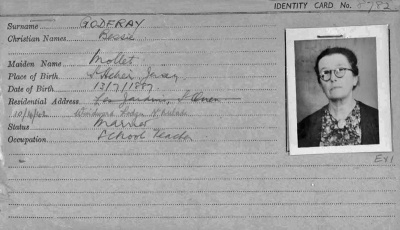 IDENTITY CARD No. 5782
Surname GODFRAY
Christian Names Bessie
Maiden Name Mollet
Place of Birth St Helier, Jersey
Date of Birth 13/7/1887
Residential Address Les Jardins, St Ouen
Status Married
Occupation School Teacher
Ex 1